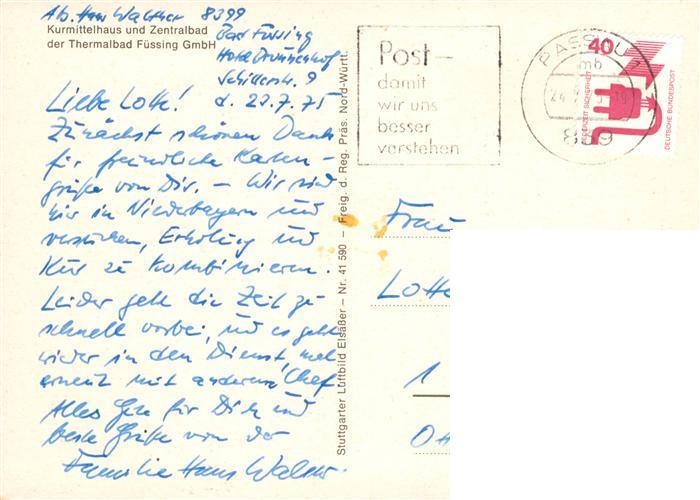 Ab. Hans Walther 8399
Kurmittelhaus und Zentralbad
der Thermalbad Füssing GmbH
Bad Füssing
Hotel Brunnenhof
Schillerstr. 9
Liebe Lotte! d. 23.7.75
Zunächst schönen Dank
für freundliche Karten-
grüße von Dir. – Wir sind
hier in Niederbayern und
versuchen, Erholung und
Kur zu kombinieren.
Leider geht die Zeit zu
schnell vorbei, und es geht
wieder in den Dienst,
erneut mit anderem Chef.
Alles Gute für Dich und
beste Grüße von der
Familie Hans
Stuttgarter Luftbild Elsäßer – Nr. 41 590 – Freig. d. Reg. Präs. Nord-Württ.
Post –
damit
wir uns
besser
verstehen
PASSAU 1
mb
24.
839
40
JEDERZEIT SICHERHEIT
DEUTSCHE BUNDESPOST
Frau
Lotte
1